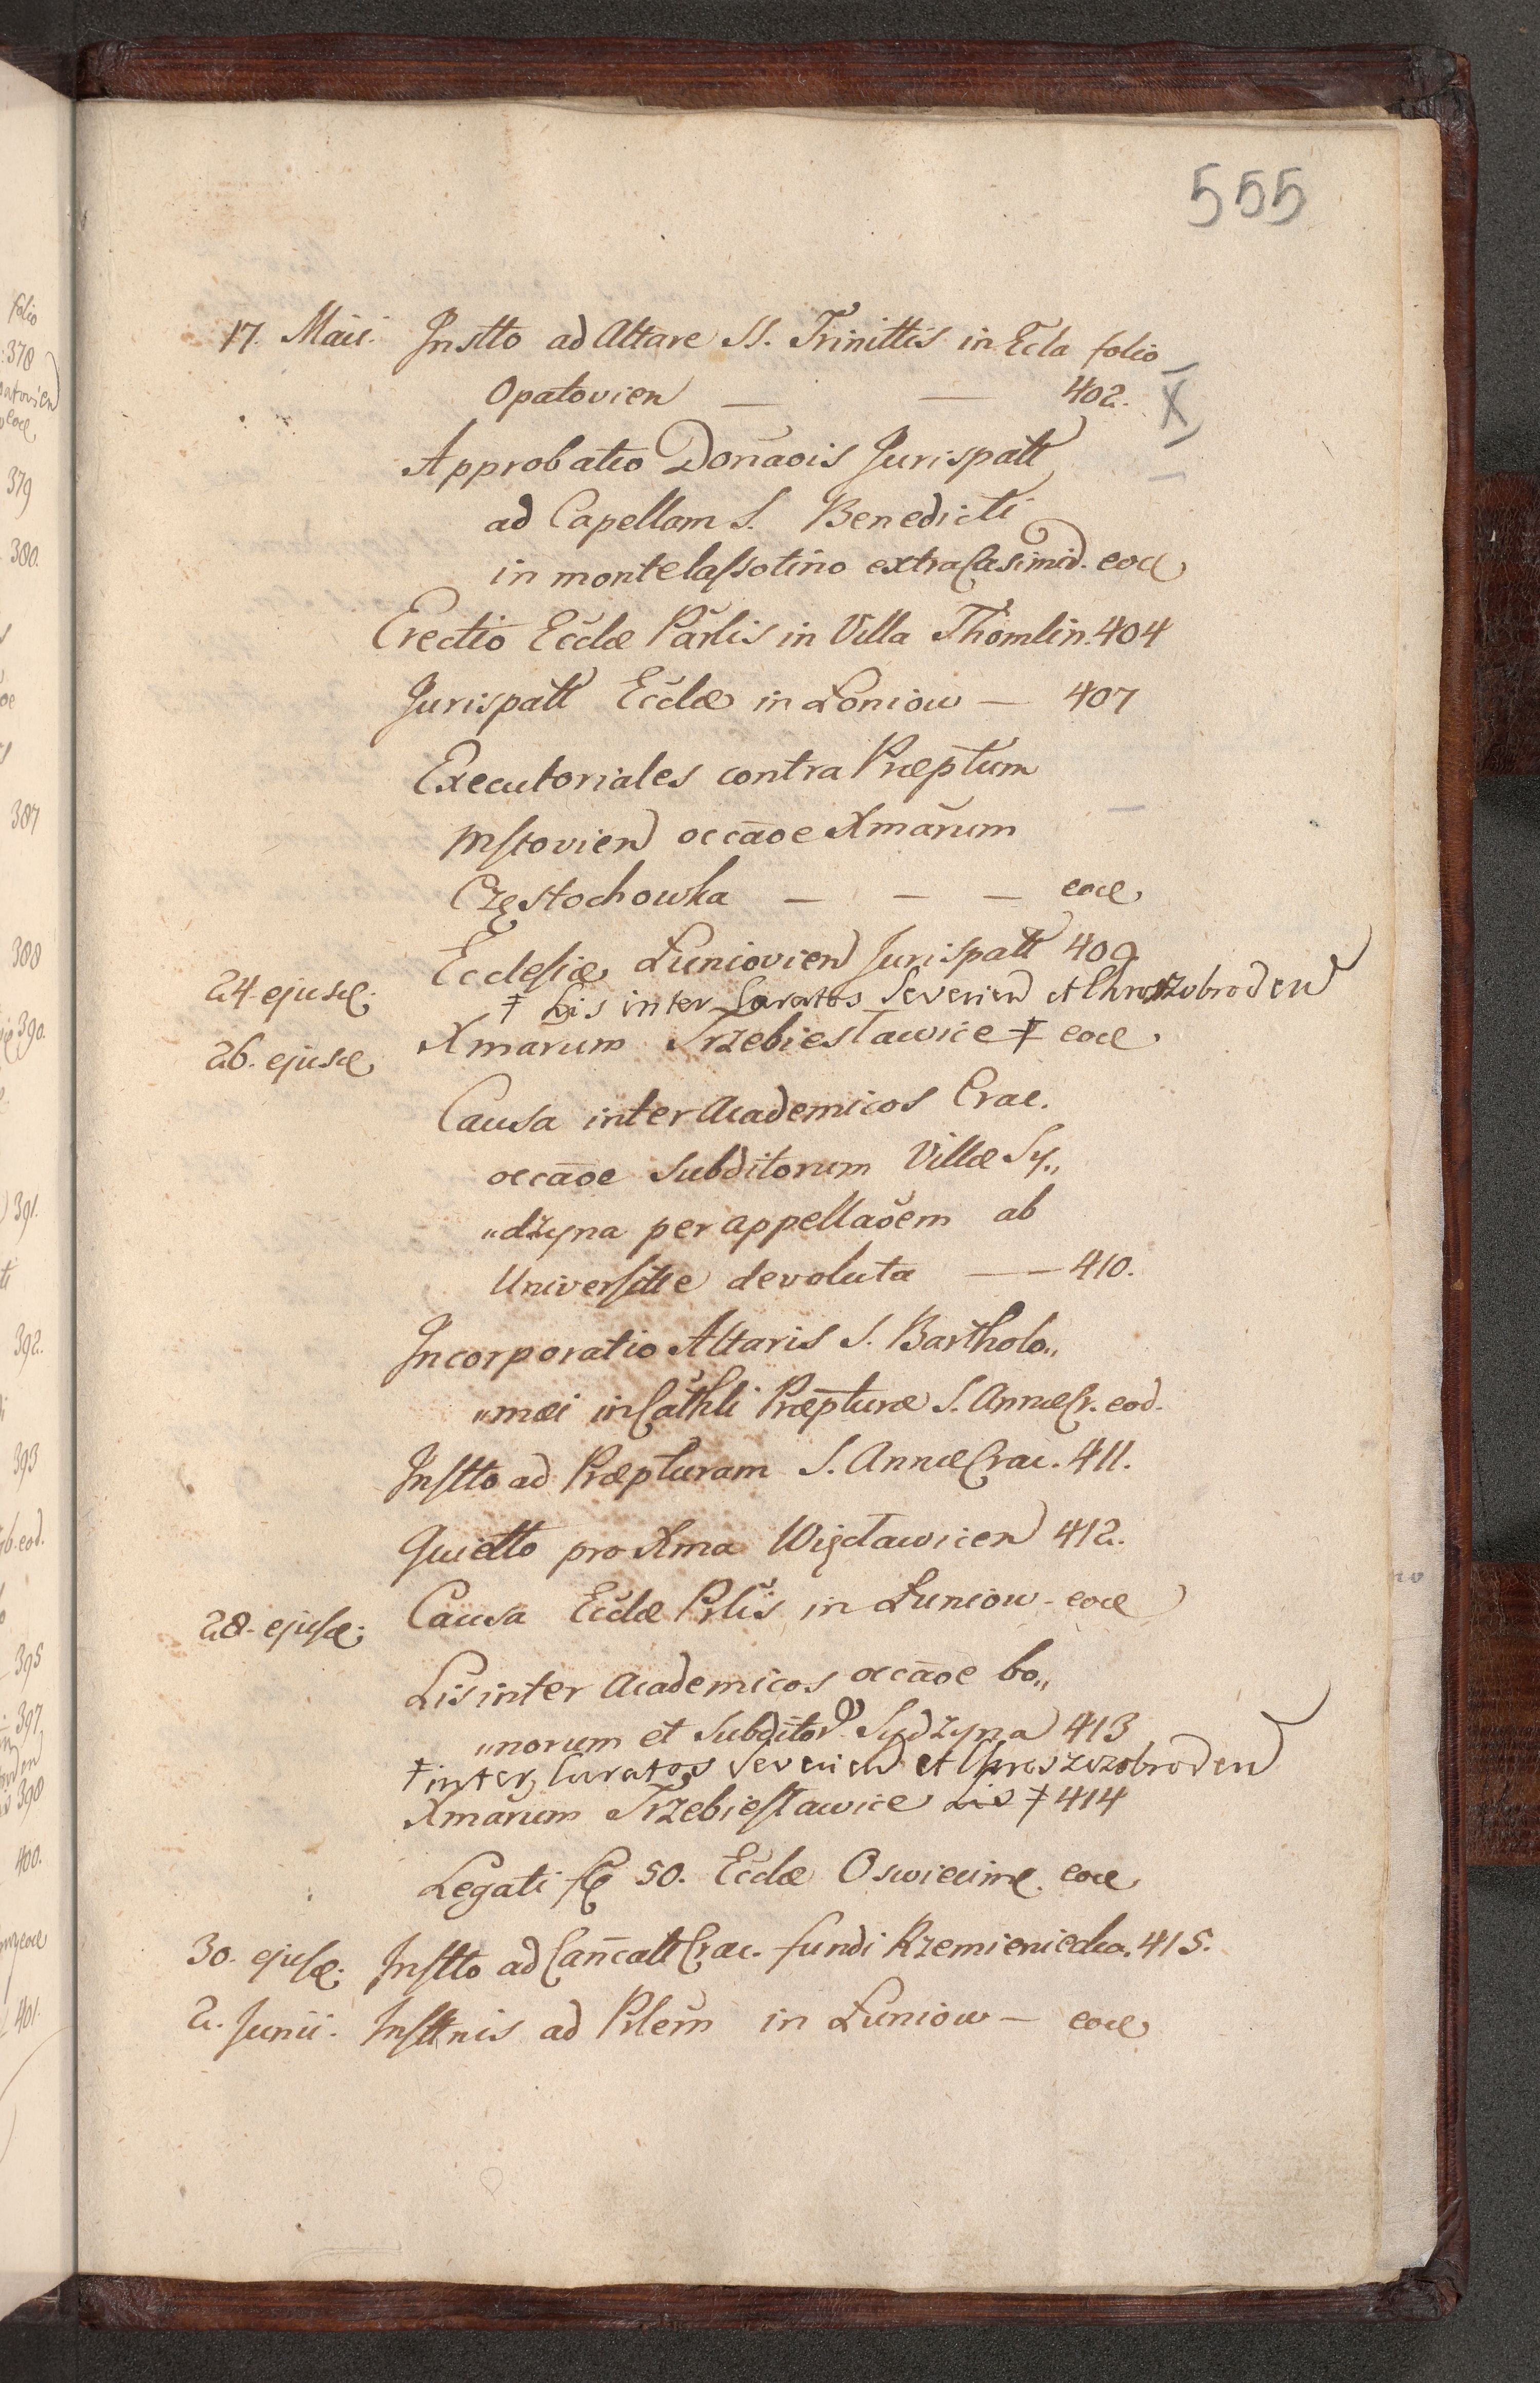 555
17. Maii. Instto ad Altare SS. Trinittis in Ecla folio
Opatovien — — 402. X
Approbatio Donãois Jurispatt
ad Capellam S. Benedicti
in monte lassotino extra Casimid. eod
Erectio Eccłæ Parlis in Villa Thomlin. 404
Jurispatt Eccłæ in Łoniow — 407
Executoriales contra Præptum
Mstovien occãoe Xmarum
Częstochowka — — — eod
Ecclesiæ Łuniovien Jurispatt 409
24. ejusd.
‡ Lis inter Curatos Severien et Chroszobroden
26. ejusd Xmarum Trzebiesławice ‡ eod.
Causa inter Academicos Crac.
occãoe subditorum Villæ Sy„
„dzyna per appellaõem ab
Universitte devoluta — — 410.
Incorporatio Altaris S. Bartholo„
„mæi in Cathli Præpturæ S. Annæ Cr. eod.
Instto ad Præpturam S. Annæ Crac. 411.
Quietto pro Xma Więcławicen 412.
28. ejusd. Causa Eccłæ Prlis in Łuniow - eod
Lis inter Academicos occãoe bo„
„norum et Subditor Sydzyna 413
‡ inter Curatos Severien et Chroszczobroden
Xmarum Trzebiesławice Lis ‡ 414
Legati fl 50. Eccłæ Oswiecime. eod
30. ejusd. Instto ad Cancatt Crac. fundi Krzemienicka. 415.
2. Junii. Insttnis ad Prlem in Łuniow — eod
folio
378
379
380.
387
388
390.
391.
392.
393
eod.
395
397
398
400.
401.